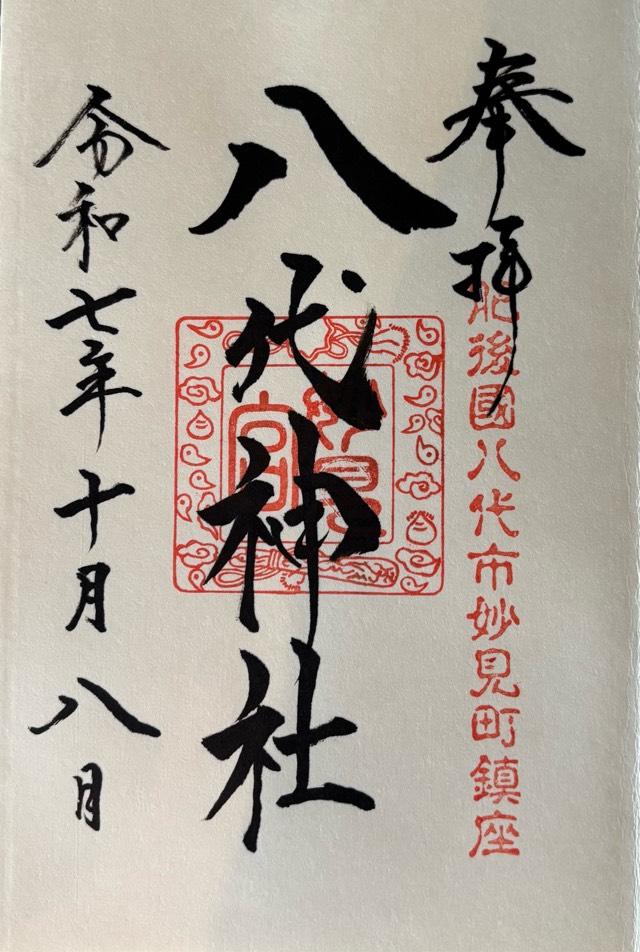 奉拝
肥後國八代市妙見町鎮座
八代神社
妙見
宮
令和七年十月八日